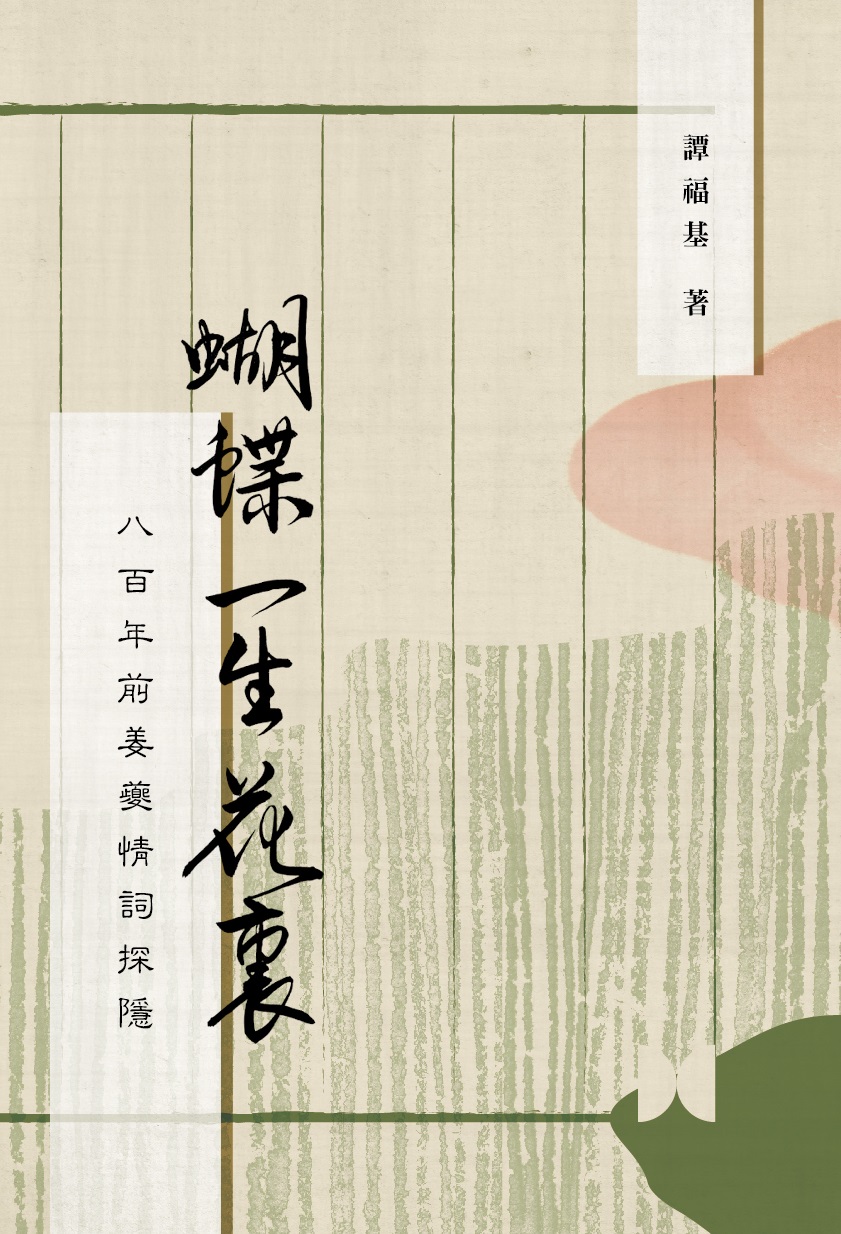 譚福基 著
蝴蝶一生花裏
八百年前姜夔情詞探隱